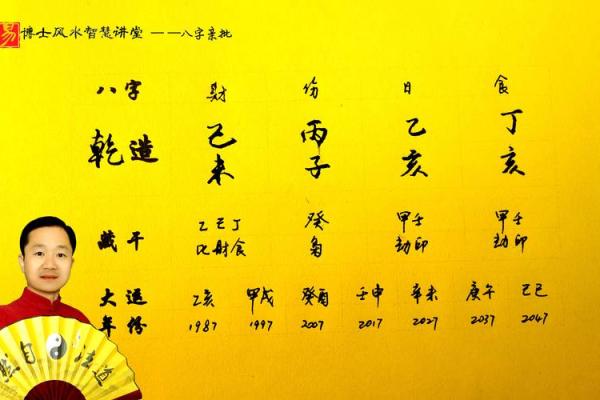 易 博士风水智慧讲堂 ——八字亲批
八字 财 伤 日 食
乾造 己未 丙子 乙亥 丁亥
藏干 乙己丁 癸 甲壬 甲壬
比财食 枭 劫印 劫印
大运 乙亥 甲戌 癸酉 壬申 辛未 庚午 己巳
年份 1987 1997 2007 2017 2027 2037 2047
然自法道